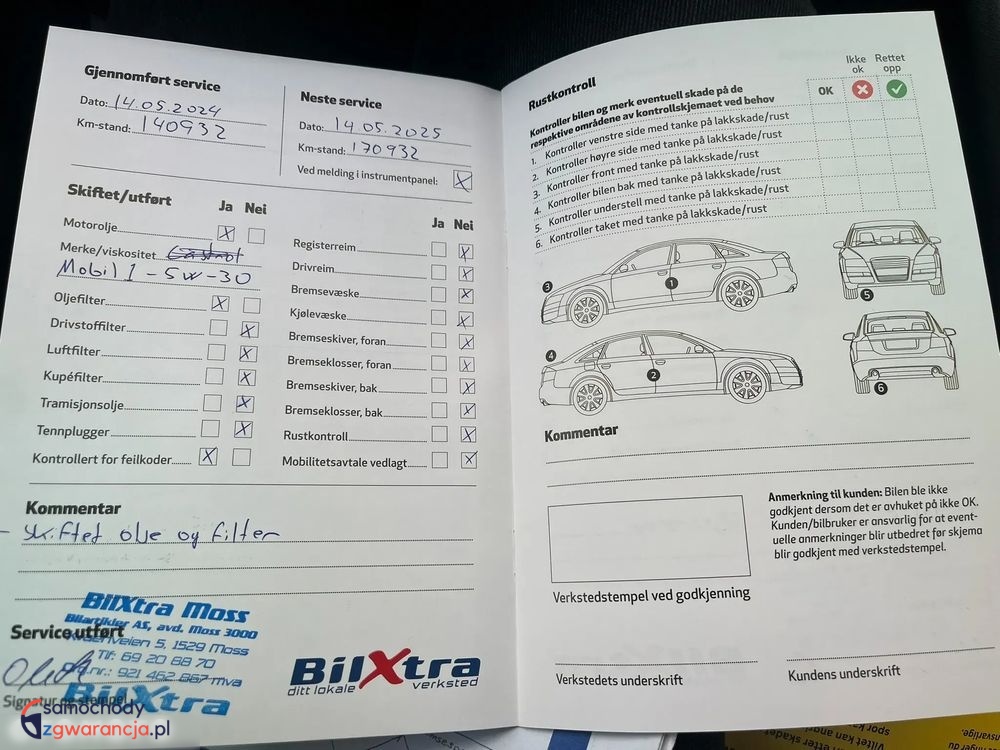 Gjennomført service
Dato: 14.05.2024
Km-stand: 140932
Neste service
Dato: 14.05.2025
Km-stand: 170932
Ved melding i instrumentpanel: X
Skiftet/utført Ja Nei
Motorolje X
Merke/viskositet Castrol
Mobil 1 - 5W-30
Oljefilter X
Drivstoffilter X
Luftfilter X
Kupéfilter X
Tramisjonsolje X
Tennplugger X
Kontrollert for feilkoder X
Ja Nei
Registerreim X
Drivreim X
Bremsevæske X
Kjølevæske X
Bremseskiver, foran X
Bremseklosser, foran X
Bremseskiver, bak X
Bremseklosser, bak X
Rustkontroll X
Mobilitetsavtale vedlagt X
Kommentar
- skiftet olje og filter
BilXtra Moss
Bilartikler AS, avd. Moss 3000
5, 1529 Moss
Tlf: 69 20 88 70
921 462 867 mva
BilXtra
Service utført
Signatur og stempel
BilXtra
ditt lokale verksted
samochody
zgwarancja.pl
Rustkontroll
Kontroller bilen og merk eventuell skade på de
respektive områdene av kontrollskjemaet ved behov
OK
Ikke
ok
Rettet
opp
1. Kontroller venstre side med tanke på lakkskade/rust
2. Kontroller høyre side med tanke på lakkskade/rust
3. Kontroller front med tanke på lakkskade/rust
4. Kontroller bilen bak med tanke på lakkskade/rust
5. Kontroller understell med tanke på lakkskade/rust
6. Kontroller taket med tanke på lakkskade/rust
3
1
5
4
2
6
Kommentar
Anmerkning til kunden: Bilen ble ikke
godkjent dersom det er avhuket på ikke OK.
Kunden/bilbruker er ansvarlig for at event-
uelle anmerkninger blir utbedret før skjema
blir godkjent med verkstedstempel.
Verkstedstempel ved godkjenning
Verkstedets underskrift
Kundens underskrift